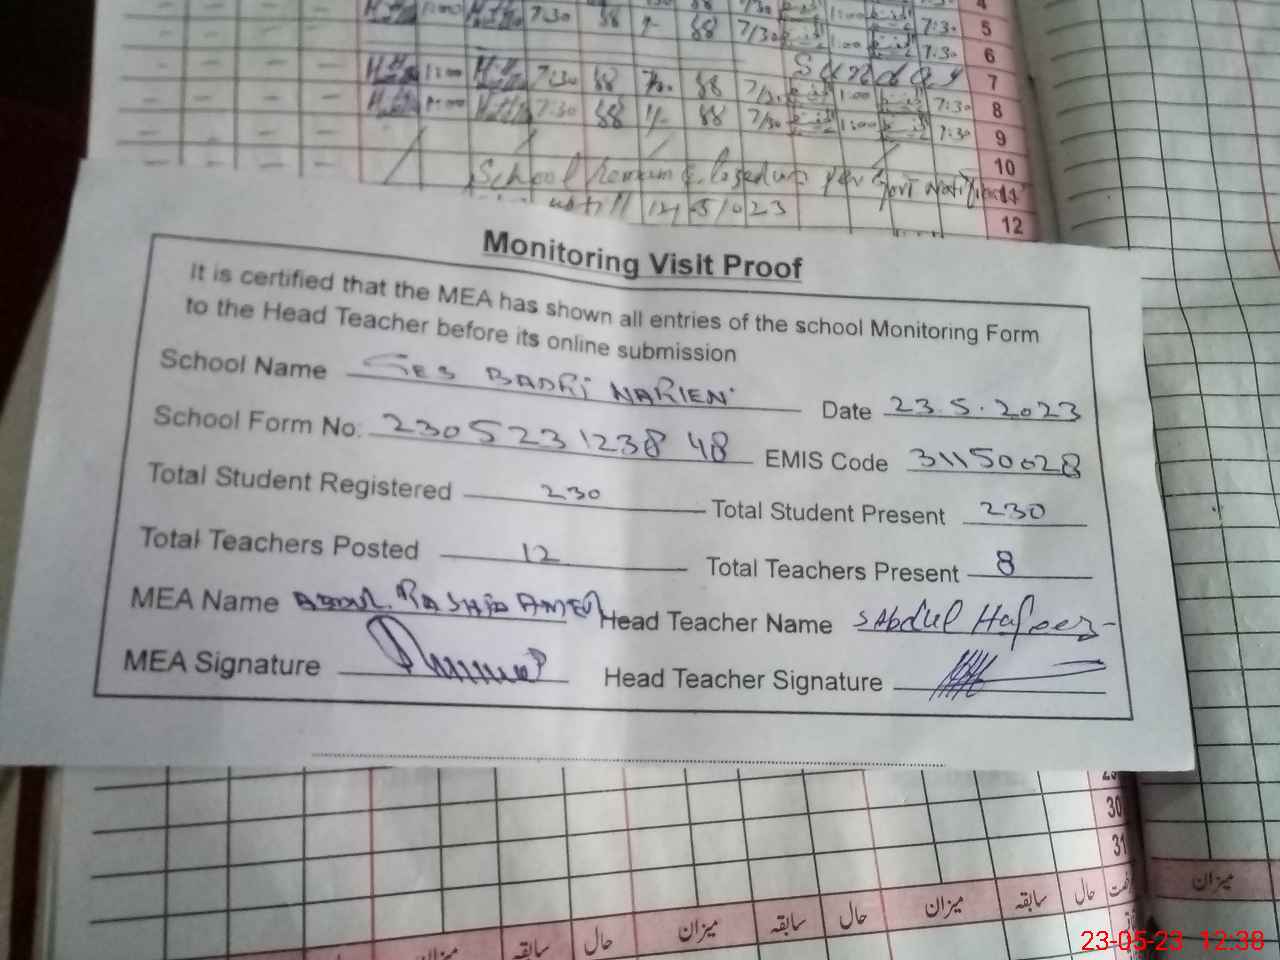 7:30 88 88 7/30 1:00 7:30 5
1:00 7:30 6
Sunday 7
7:30 88 88 7/30 1:00 7:30 8
1:00 7:30 88 88 7/30 1:00 7:30 9
10
School remain closed as per Govt 11
untill 12/5/023 12
Monitoring Visit Proof
It is certified that the MEA has shown all entries of the school Monitoring Form
to the Head Teacher before its online submission
School Name GES BADRI NARIEN Date 23.5.2023
School Form No. 230523123848 EMIS Code 31150028
Total Student Registered 230 Total Student Present 230
Total Teachers Posted 12 Total Teachers Present 8
MEA Name ABDUL RASHID AMER Head Teacher Name Abdul Hafeez
MEA Signature Head Teacher Signature
30
31
میزان سابقہ حال میزان سابقہ حال میزان سابقہ حال میزان
23-05-23 12:38